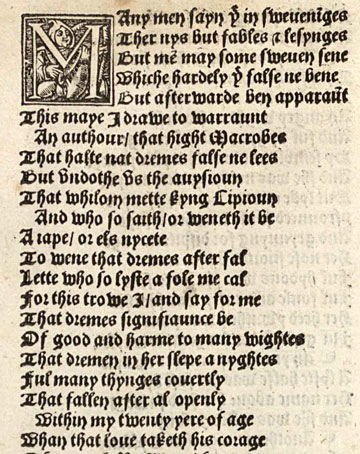 MAny men sayn yͭ in sweueninges
Ther nys but fables & lesynges
But mē may some sweuen sene
Whiche hardely yͭ false ne bene
But afterwarde ben apparaūt
This maye I drawe to warraunt
An authour/ that hight Macrobes
That halte nat dremes false ne lees
But vndothe vs the auysioun
That whilom mette kyng Cipioun
And who so saith/ or weneth it be
A iape/ or els nycete
To wene that dremes after fal
Lette who so lyste a fole me cal
For this trowe I/ and say for me
That dremes signifiaunce be
Of good and harme to many wightes
That dremen in her slepe a nyghtes
Ful many thynges couertly
That fallen after al openly
Within my twenty yere of age
Whan that loue taketh his corage